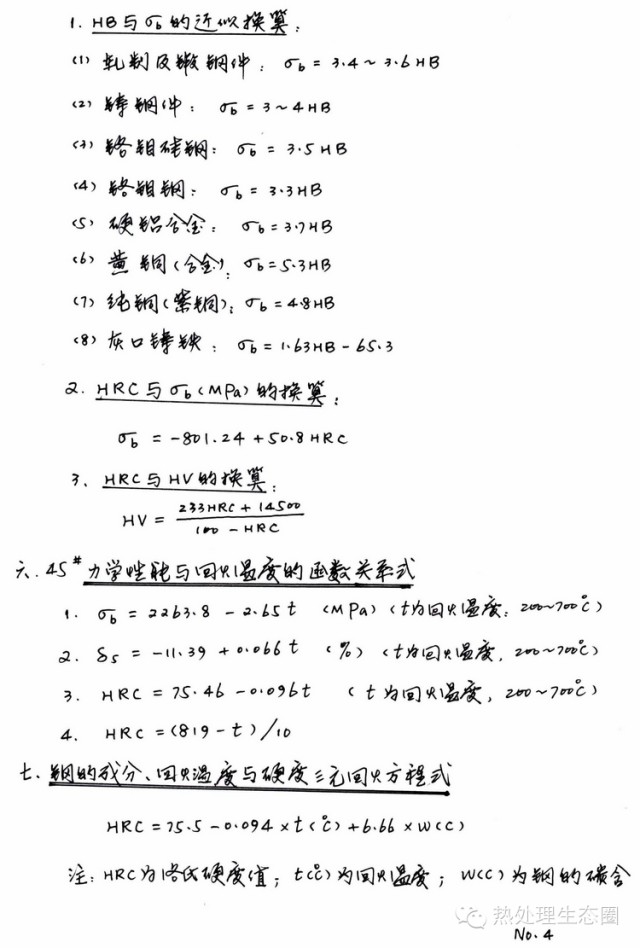 1. HB与σb的近似换算:
(1) 轧制及锻钢件: σb = 3.4~3.6HB
(2) 铸钢件: σb = 3~4HB
(3) 铬钼硅钢: σb = 3.5HB
(4) 铬钼钢: σb = 3.3HB
(5) 硬铝合金: σb = 3.7HB
(6) 黄铜(合金): σb = 5.3HB
(7) 纯铜(紫铜): σb = 4.8HB
(8) 灰口铸铁: σb = 1.63HB - 65.3
2. HRC与σb(MPa)的换算:
σb = -801.24 + 50.8HRC
3. HRC与HV的换算:
HV = (233HRC + 14500) / (100 - HRC)
六. 45# 力学性能与回火温度的函数关系式
1. σb = 2263.8 - 2.65t (MPa) (t为回火温度: 200~700℃)
2. δ5 = -11.39 + 0.066t (%) (t为回火温度, 200~700℃)
3. HRC = 75.46 - 0.096t (t为回火温度, 200~700℃)
4. HRC = (819 - t)/10
七. 钢的成分、回火温度与硬度三元回火方程式
HRC = 75.5 - 0.094×t(℃) + 6.66×W(C)
注: HRC为洛氏硬度值; t(℃)为回火温度; W(C)为钢的碳含
热处理生态圈
No.4